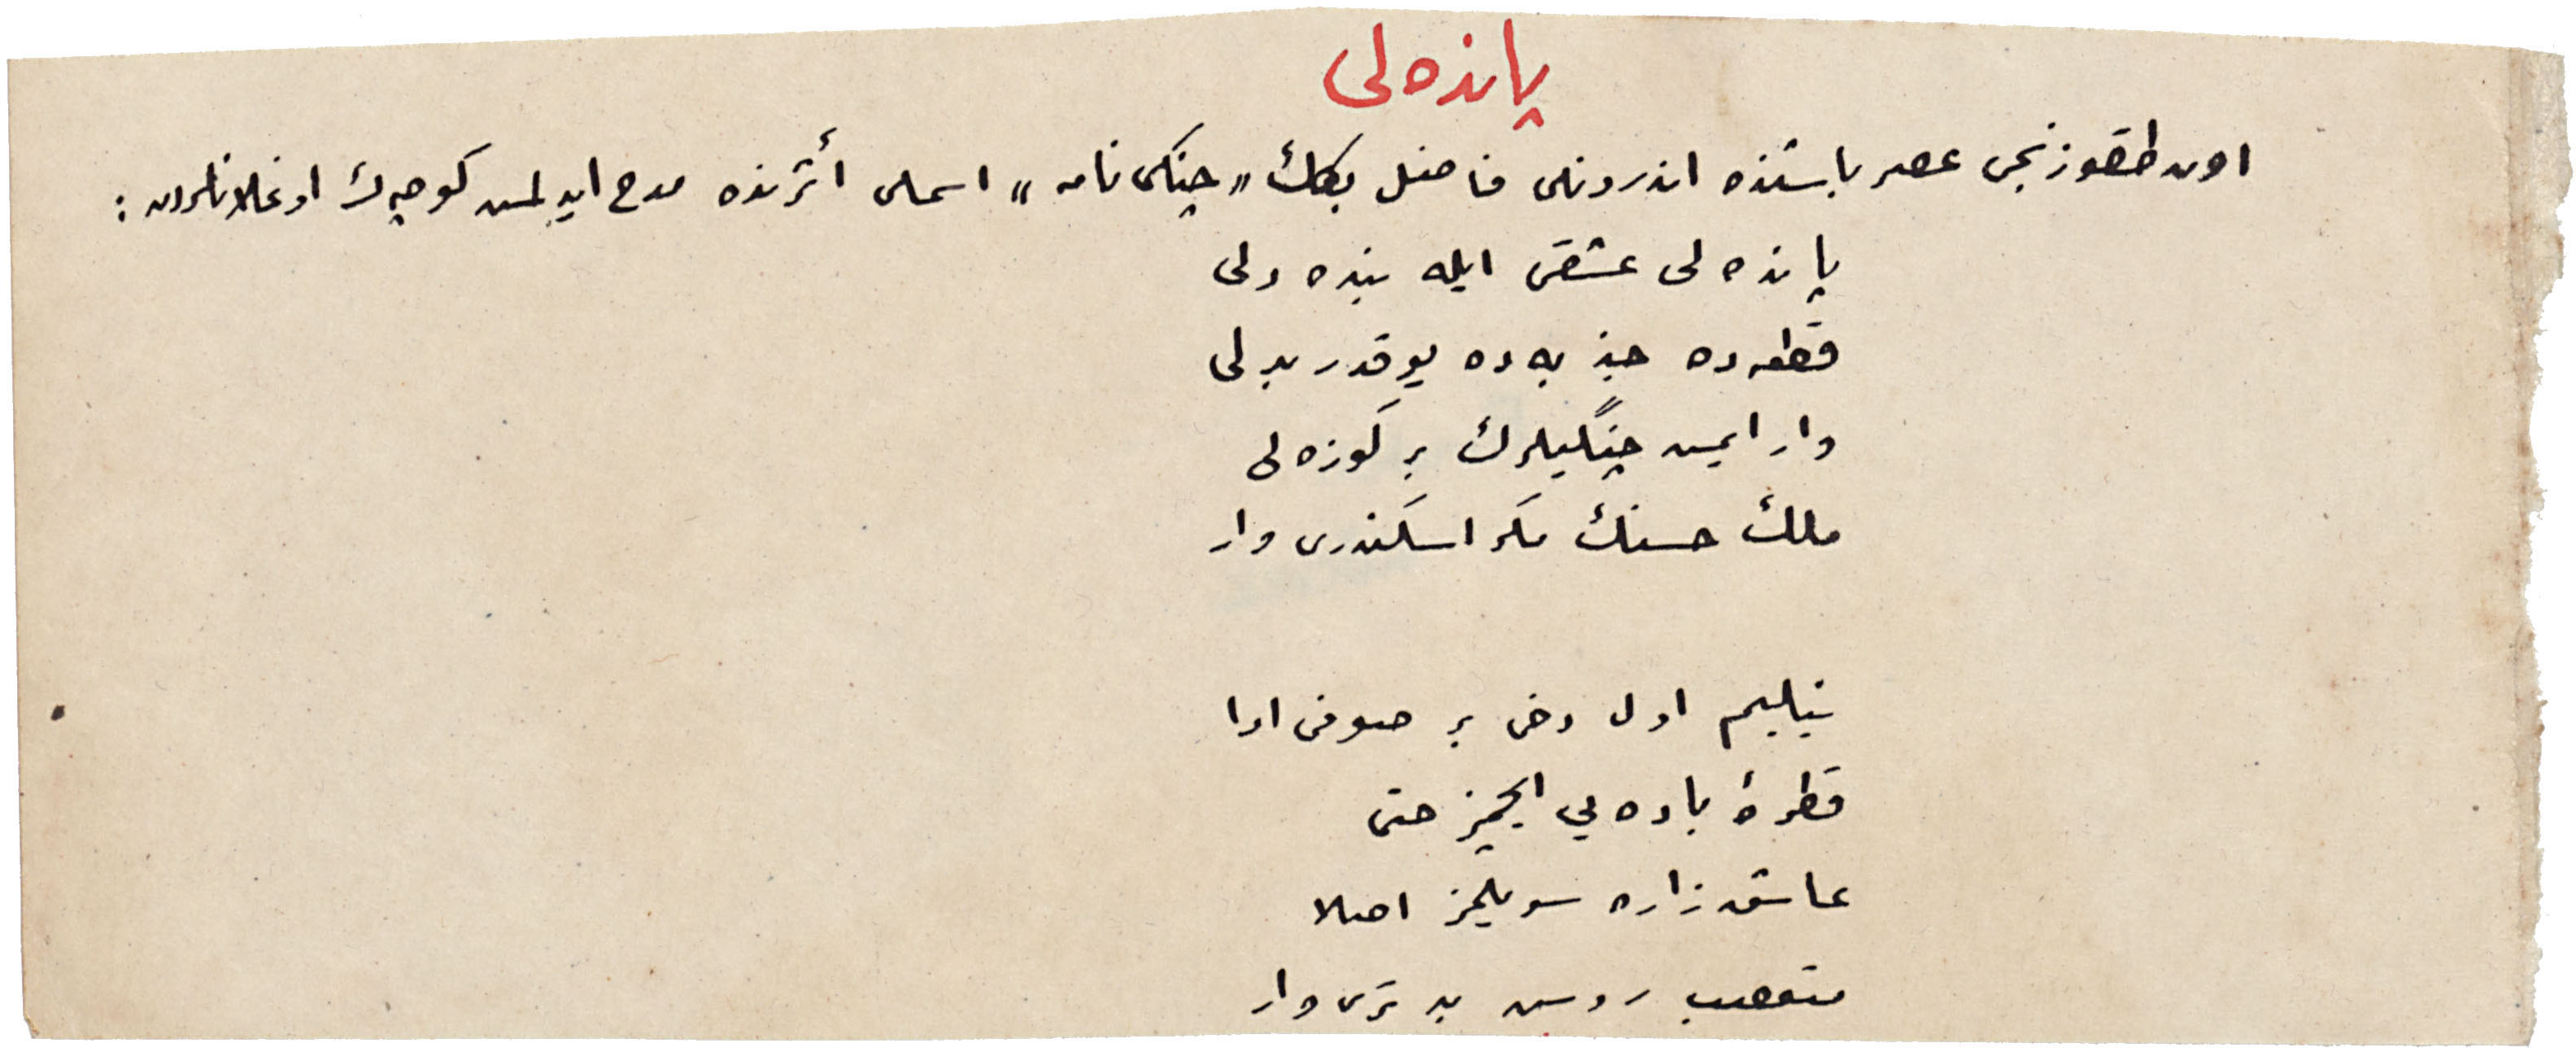 پانده‌لی
اون طقوزنجی عصر باشنده اندرونلی فاضل بكك «چنكی نامه» اسملی أثرنده مدح ایدلمش كوچك اوغلانلردن :
پانده‌لی عشقی ایله بنده دلی
قطعه‌ده جذبه‌ده یوقدر بدلی
وار ایمیش چنگیلرك بر كوزه‌لی
ملك حسنك مكر اسكندری وار
نیلیم اول دخی بر صوفی ادا
قطرۀ باده‌یی ایچمز حتی
عاشق زاره سویلمز اصلا
متعصب روس بد تری وار